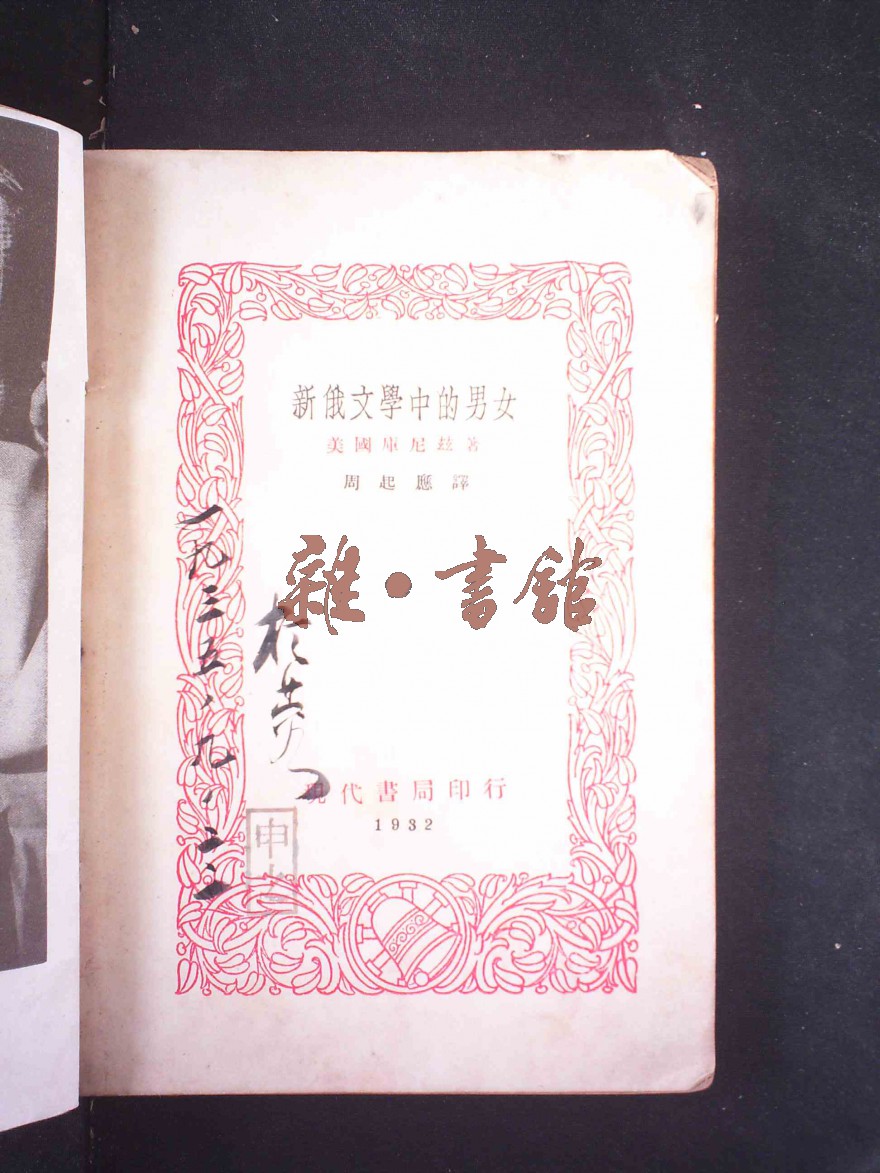 新俄文學中的男女
美國庫尼玆著
周起應譯
雜·書館
一九三五、九、二二
現代書局印行
1932
申